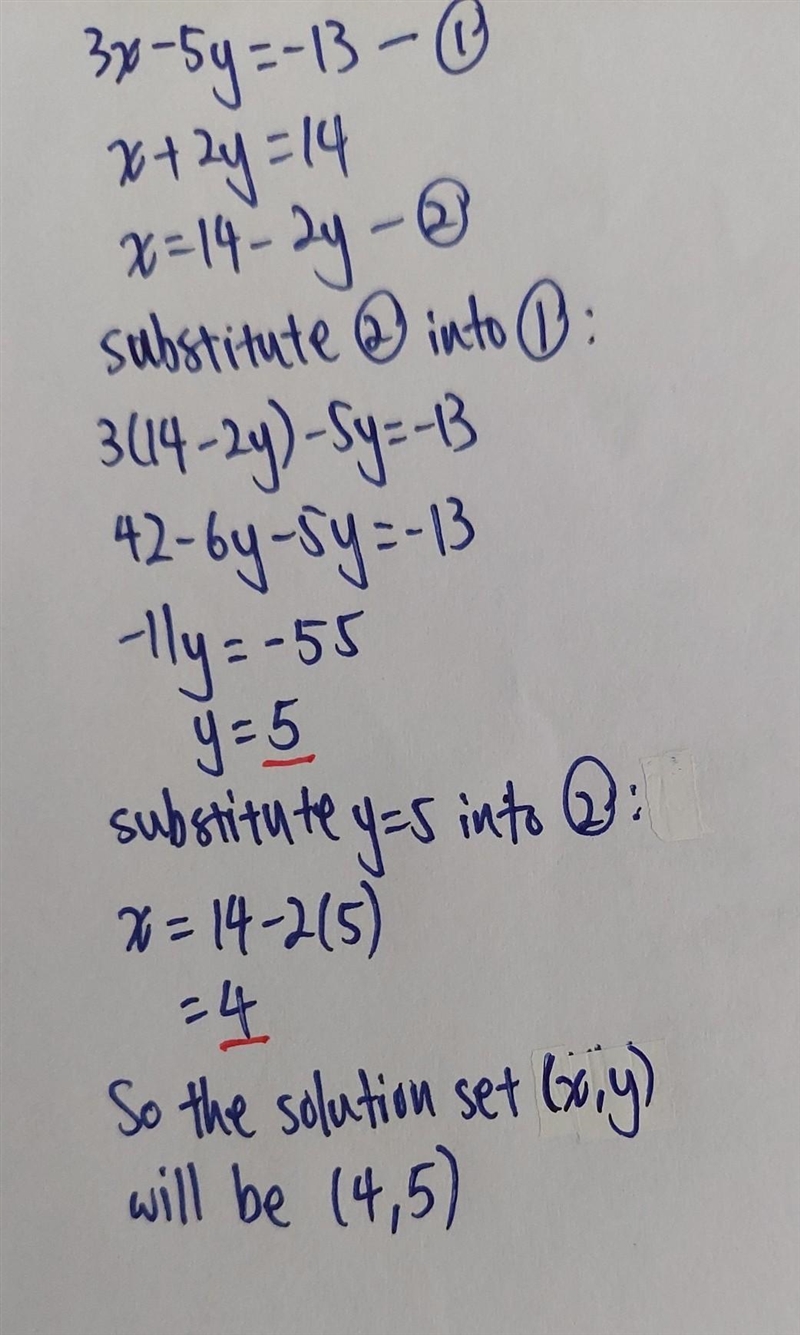 3x-5y=-13 - ①
x+2y=14
x=14-2y - ②
substitute ② into ①:
3(14-2y)-5y=-13
42-6y-5y=-13
-11y=-55
y=5
substitute y=5 into ②:
x=14-2(5)
=4
So the solution set (x,y)
will be (4,5)